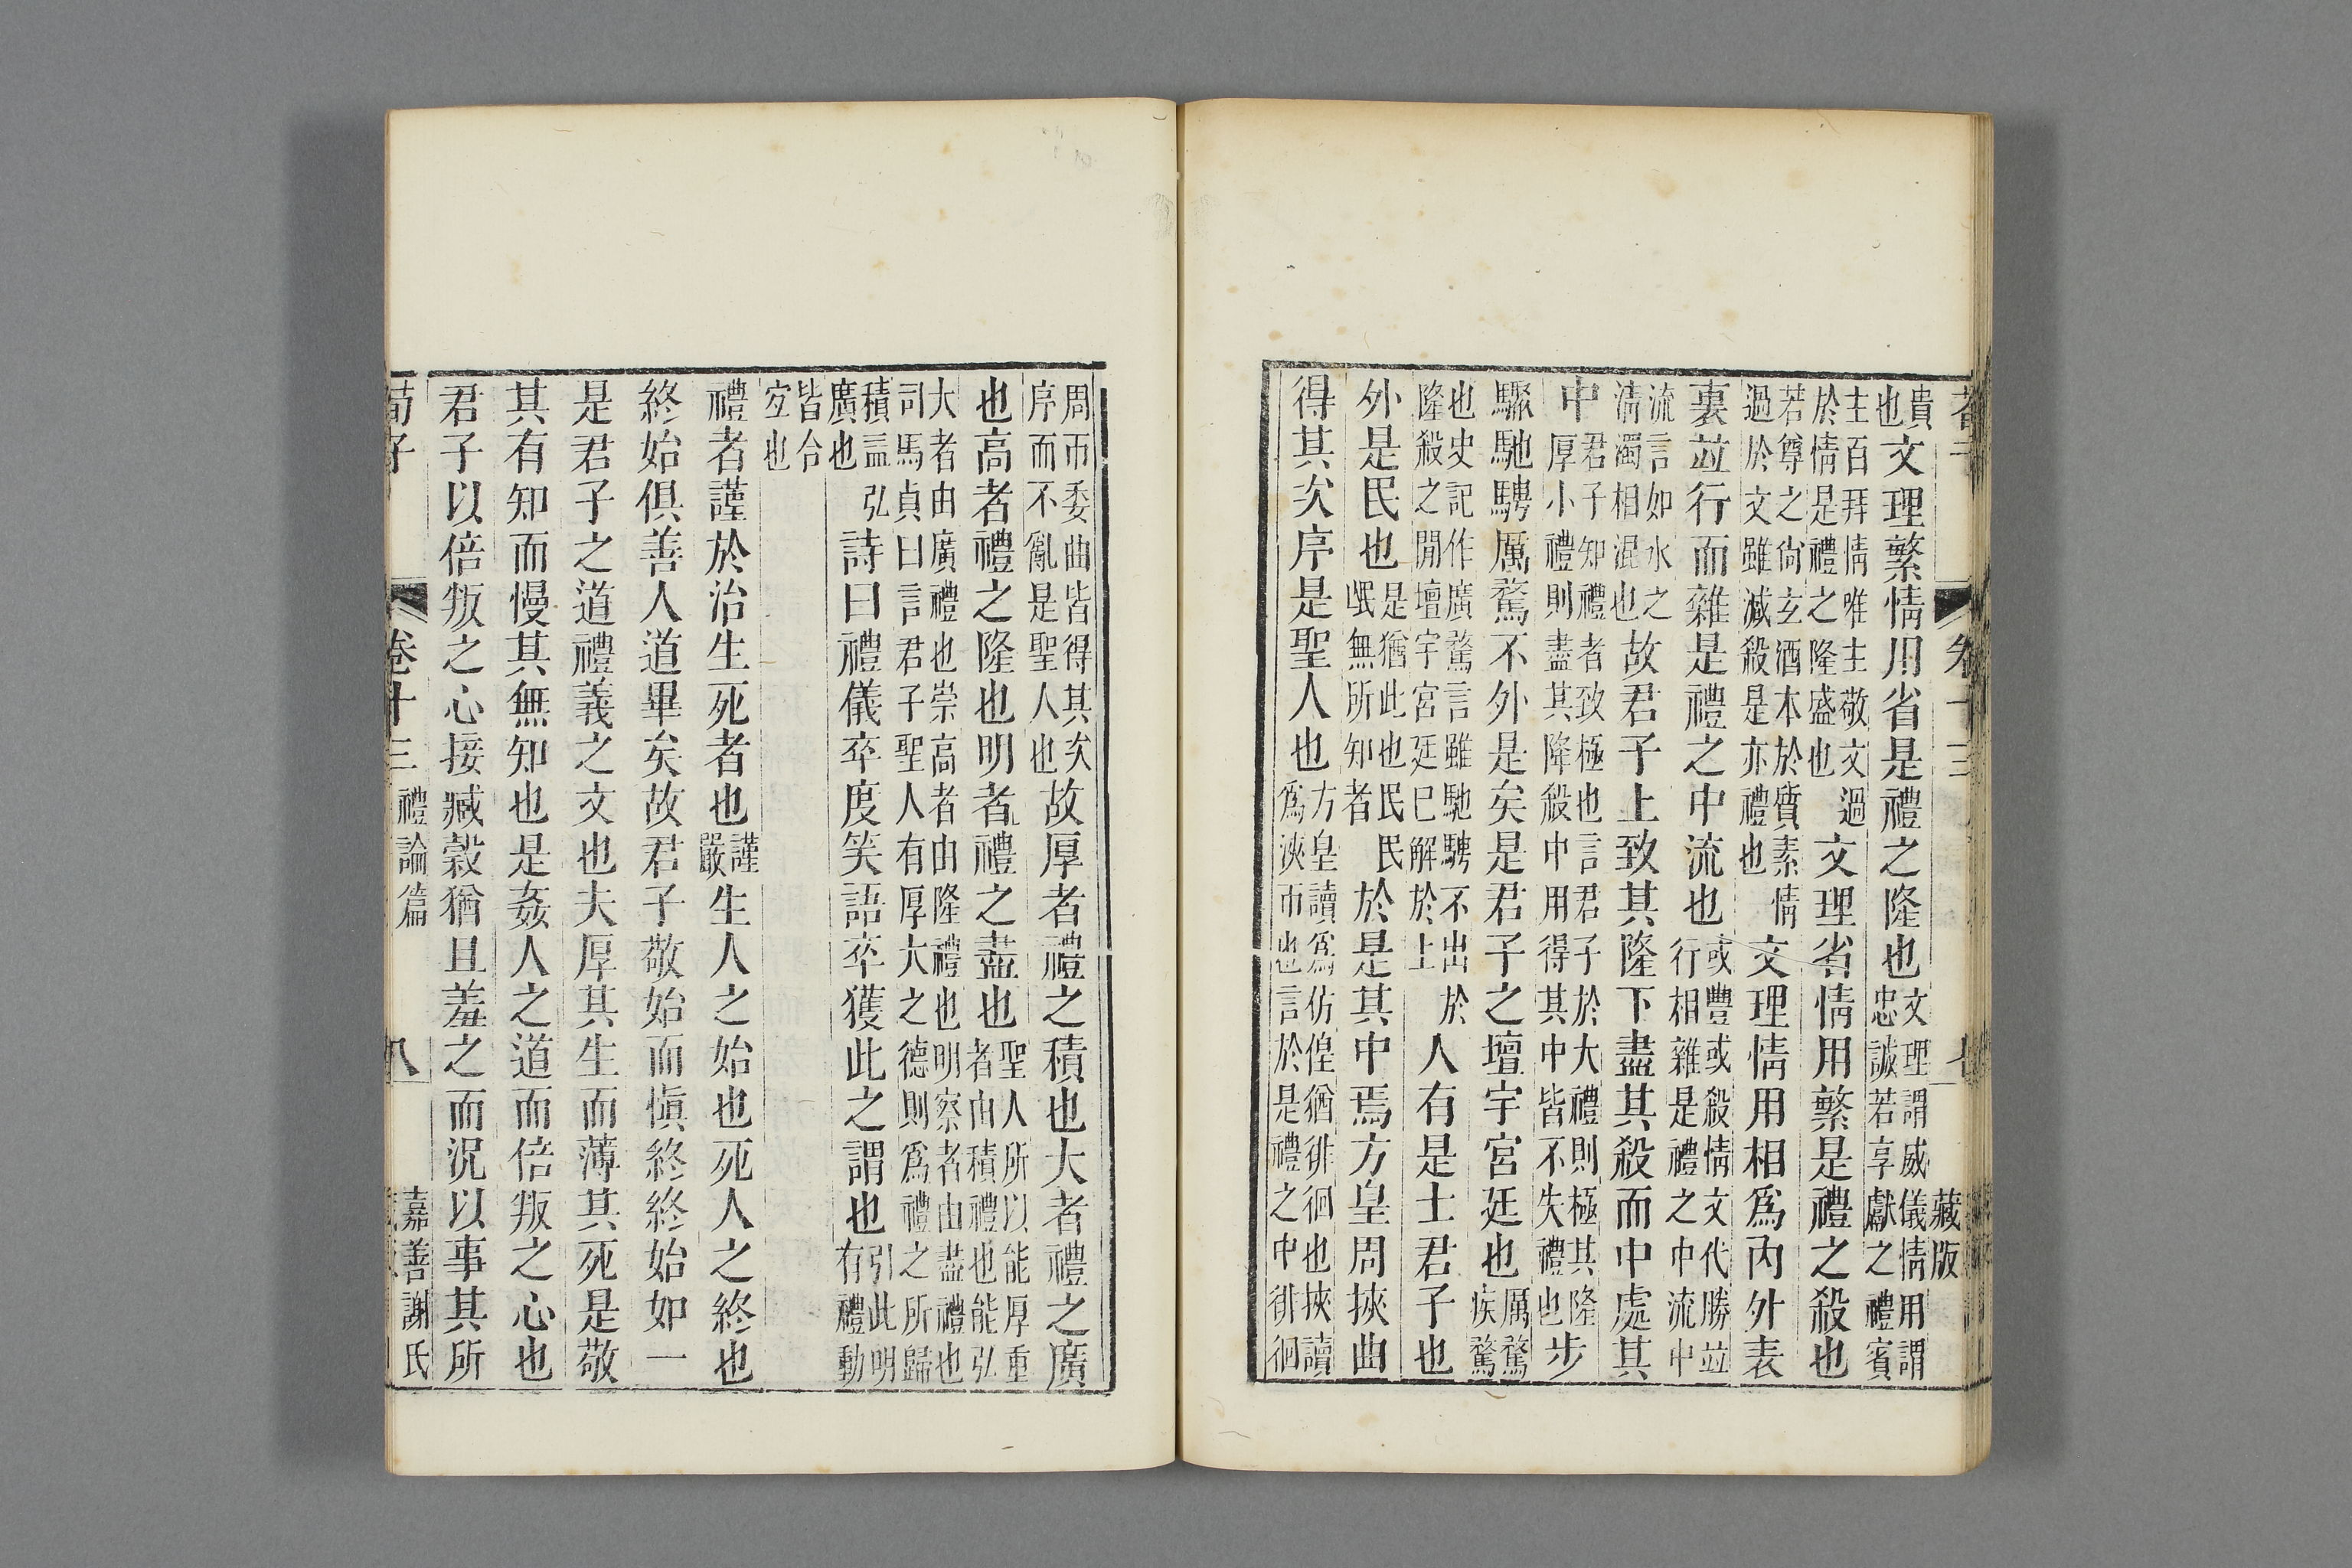 荀子 卷十三 七 藏版
貴也文理繁情用省是禮之隆也文理謂威儀情用謂忠誠若享獻之禮賓
主百拜情唯主敬文過於情是禮之隆盛也文理省情用繁是禮之殺也
若尊之尚玄酒本於質素情過於文雖減殺是亦禮也文理情用相爲內外表
裏竝行而雜是禮之中流也或豐或殺情文代勝竝行相雜是禮之中流中
流言如水之清濁相混也故君子上致其隆下盡其殺而中處其
中君子知禮者致極也言君子於大禮則極其隆厚小禮則盡其降殺中用得其中皆不失禮也步
驟馳騁厲騖不外是矣是君子之壇宇宮廷也厲騖疾騖
也史記作廣騖言雖馳騁不出於隆殺之閒壇宇宮廷已解於上人有是士君子也
外是民也是猶此也民民氓無所知者於是其中焉方皇周挾曲
得其次序是聖人也方皇讀爲仿偟猶徘徊也挾讀爲浹帀也言於是禮之中徘徊
周帀委曲皆得其次序而不亂是聖人也故厚者禮之積也大者禮之廣
也高者禮之隆也明者禮之盡也聖人所以能厚重者由積禮也能弘
大者由廣禮也崇高者由隆禮也明察者由盡禮也司馬貞曰言君子聖人有厚大之德則爲禮之所歸
積益弘廣也詩曰禮儀卒度笑語卒獲此之謂也引此明有禮動
皆合宜也
禮者謹於治生死者也謹嚴生人之始也死人之終也
終始俱善人道畢矣故君子敬始而愼終終始如一
是君子之道禮義之文也夫厚其生而薄其死是敬
其有知而慢其無知也是姦人之道而倍叛之心也
君子以倍叛之心接臧穀猶且羞之而況以事其所
荀子 卷十三 禮論篇 八 嘉善謝氏